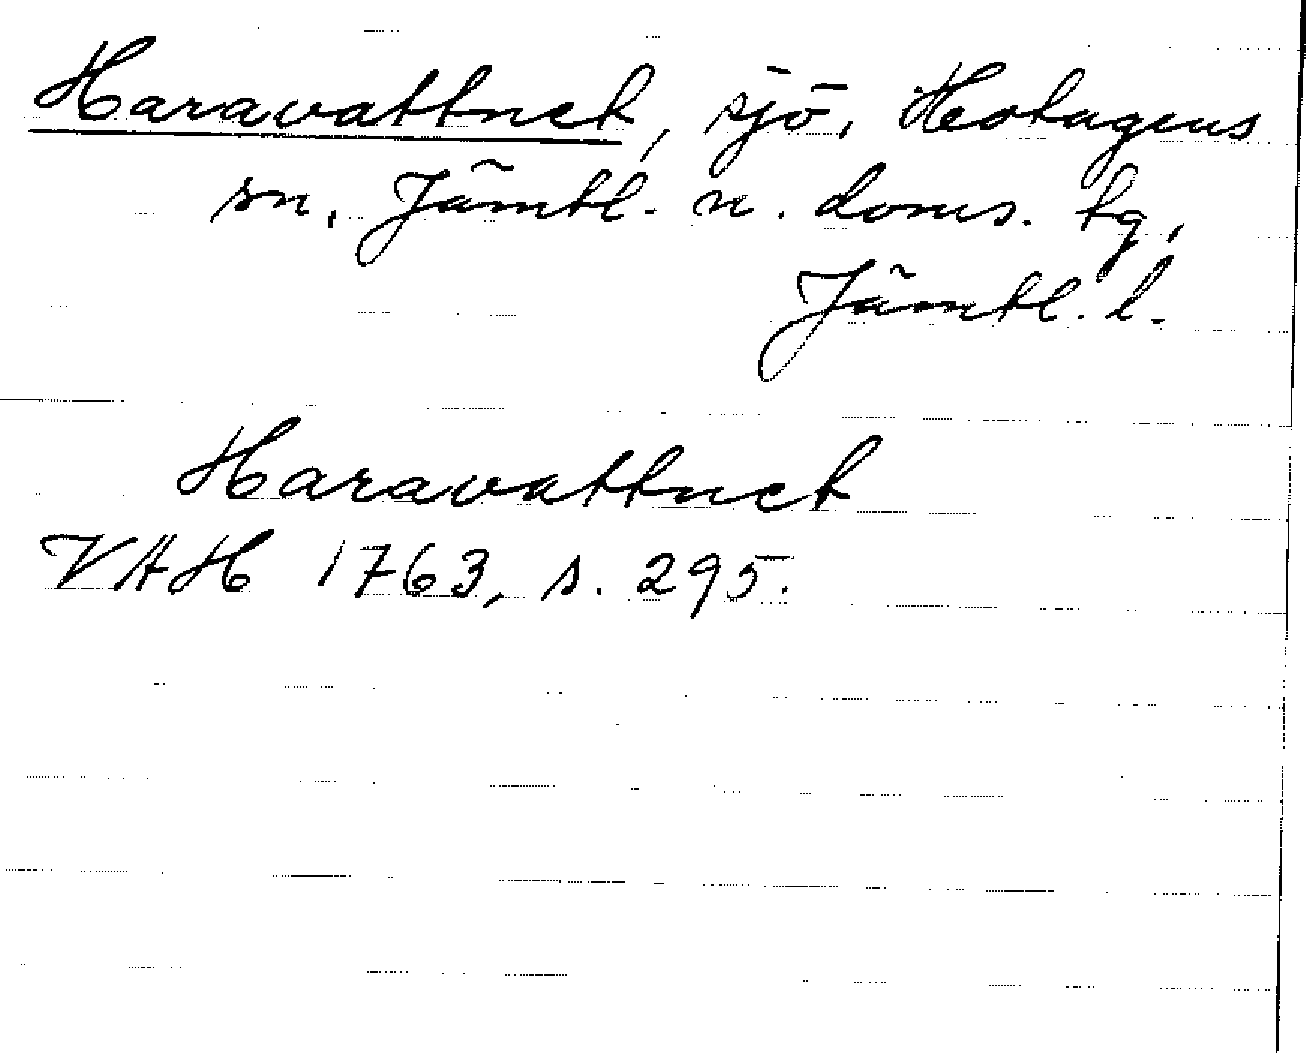 Haravattnet, sjö, Hotagens
sn, Jämtl. n. doms. tg,
Jämtl. l.
Haravattnet
VAH 1763, s. 295.